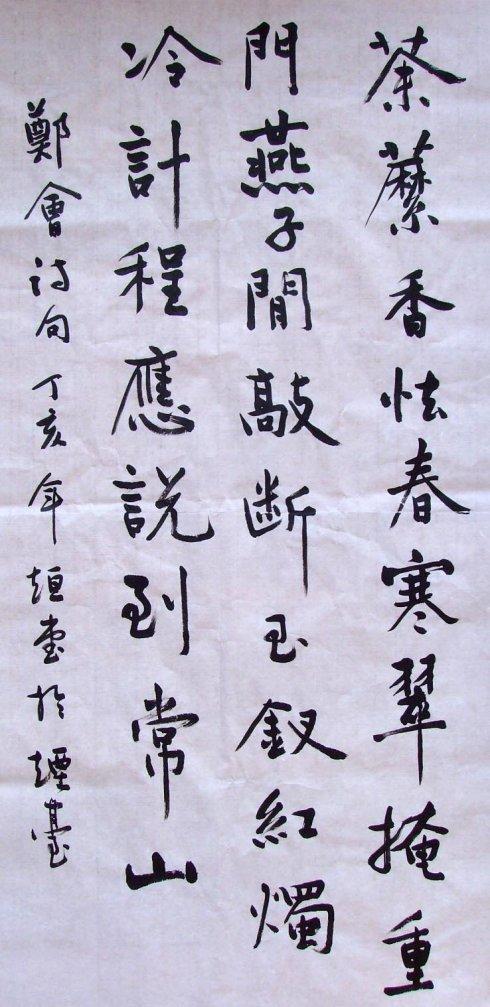 荼䕷香怯春寒翠掩重
門燕子閒敲斷玉釵紅燭
冷計程應説到常山
鄭會詩句 丁亥年 於煙臺